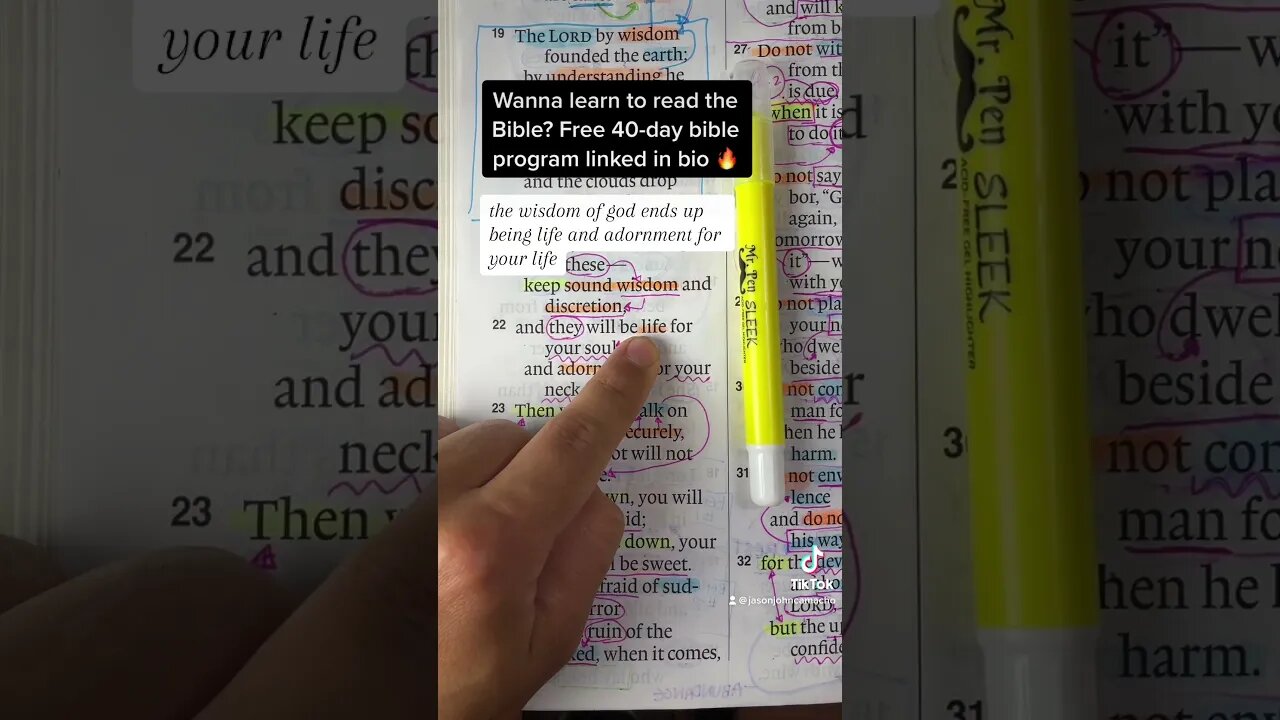 your life
keep
disc
22
and they
your
and ad
neck
23
Then
19 The LORD by wisdom
founded the earth;
by understanding he
Wanna learn to read the
Bible? Free 40-day bible
program linked in bio 🔥
and the clouds drop
the wisdom of god ends up
being life and adornment for
your life
these—
keep sound wisdom and
discretion,
22 and they will be life for
your soul
and adorn or your
neck
23 Then alk on
ecurely,
ot will not
wn, you will
id;
down, your
be sweet.
fraid of sud-
rror
ruin of the
ked, when it comes,
and will k
from b
27 Do not wit
from th
is due,
when it is
to do it
o not say
bor, “G
again,
omorrow
it”—w
with yo
o not pla
your n
ho dwel
beside
not con
man fo
hen he h
harm.
31 not env
lence
and do no
his way
32 for the dev
LORD,
but the up
confid
Mr. Pen SLEEK
ACID-FREE GEL HIGHLIGHTER
TikTok
@jasonjohncamacho
it”—w
with y
not pla
your n
ho dwel
beside
not con
man fo
hen he h
harm.
31
Mr. Pen SLEEK
ACID-FREE GEL HIGHLIGHTER